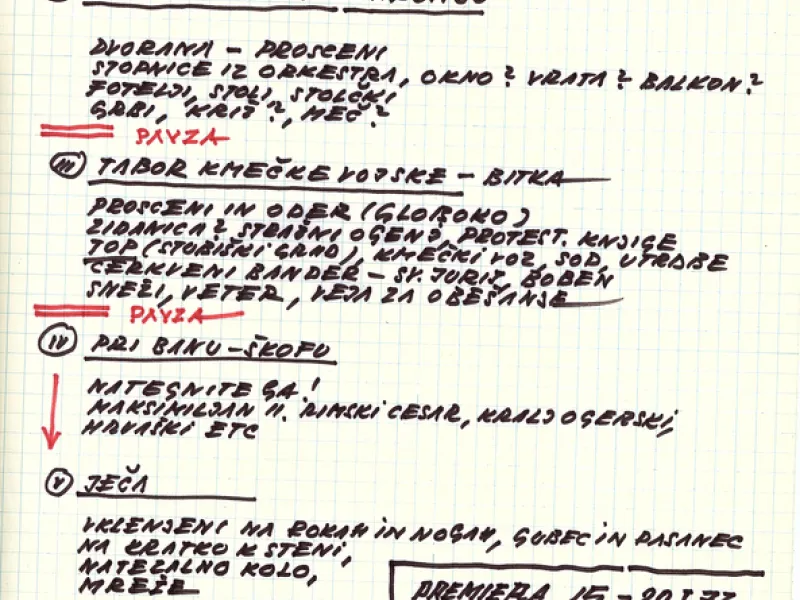 DVORANA – PROSCENI
STOPNICE IZ ORKESTRA, OKNO? VRATA? BALKON?
FOTELJI, STOLI, STOLČKI
GRBI, KRIŽ?, MEČ?
PAVZA
III TABOR KMEČKE VOJSKE – BITKA
PROSCENI IN ODER (GLOBOKO)
ZIDANICA? STRAŽNI OGENJ, PROTEST. KNJIGE
TOP (STUBIŠKI GRAD), KMEČKI VOZ, SOD, UTRDBE
CERKVENI BANDER – SV. JURIJ, BOBEN
SNEŽI, VETER, VEJA ZA OBEŠANJE
PAVZA
IV PRI BANU–ŠKOFU
NATEGNITE GA!
MAKSIMILJAN II. RIMSKI CESAR, KRALJ OGERSKI,
HRVAŠKI ETC
V JEČA
VKLENJENI NA ROKAH IN NOGAH, GUBEC IN PASANEC
NA KRATKO K STENI,
NATEZALNO KOLO,
MREŽE
PREMIERA 15 – 20 I 77